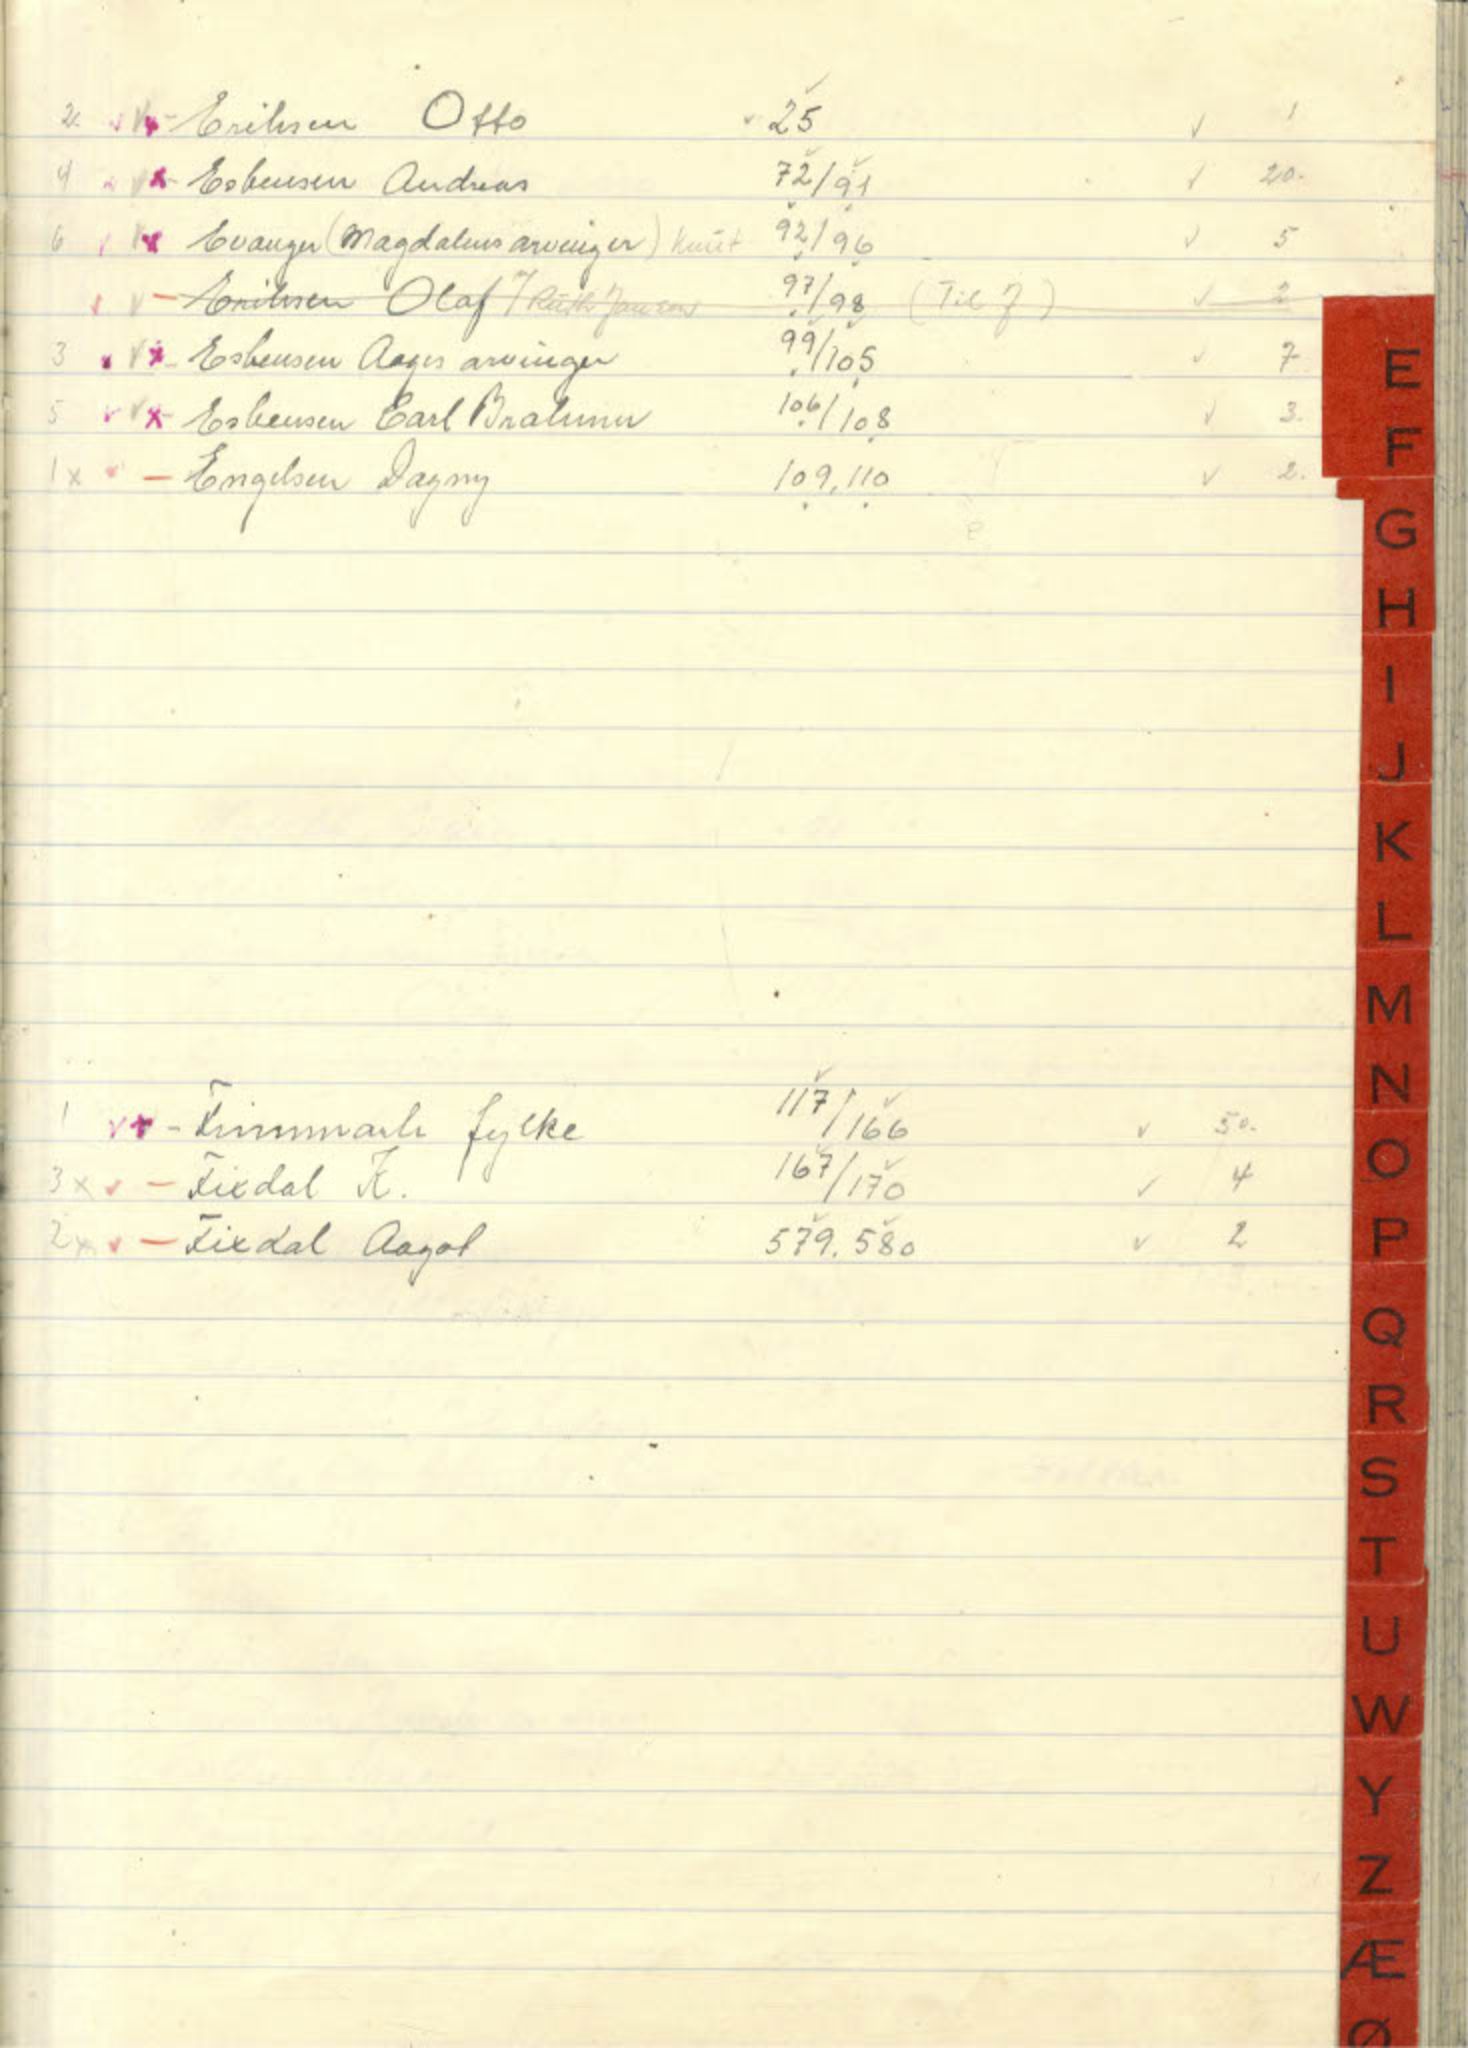 2. Eriksen Otto 25 1
4 Esbensen Andreas 72/91 20.
6 Evanger (Magdalens arvinger) Knut 92/96 5
Eriksen Olaf / Ruth Jansen 97/98 (Til J) 2
3 Esbensen Aages arvinger 99/105 7
5 Esbensen Carl 106/108 3.
1 x Engelsen Dagny 109, 110 2.
1 Finnmark fylke 117/166 50.
3 x Fixdal K. 167/170 4
2 x Fixdal Aagot 579, 580 2
E
F
G
H
I
J
K
L
M
N
O
P
Q
R
S
T
U
W
Y
Z
Æ
Ø